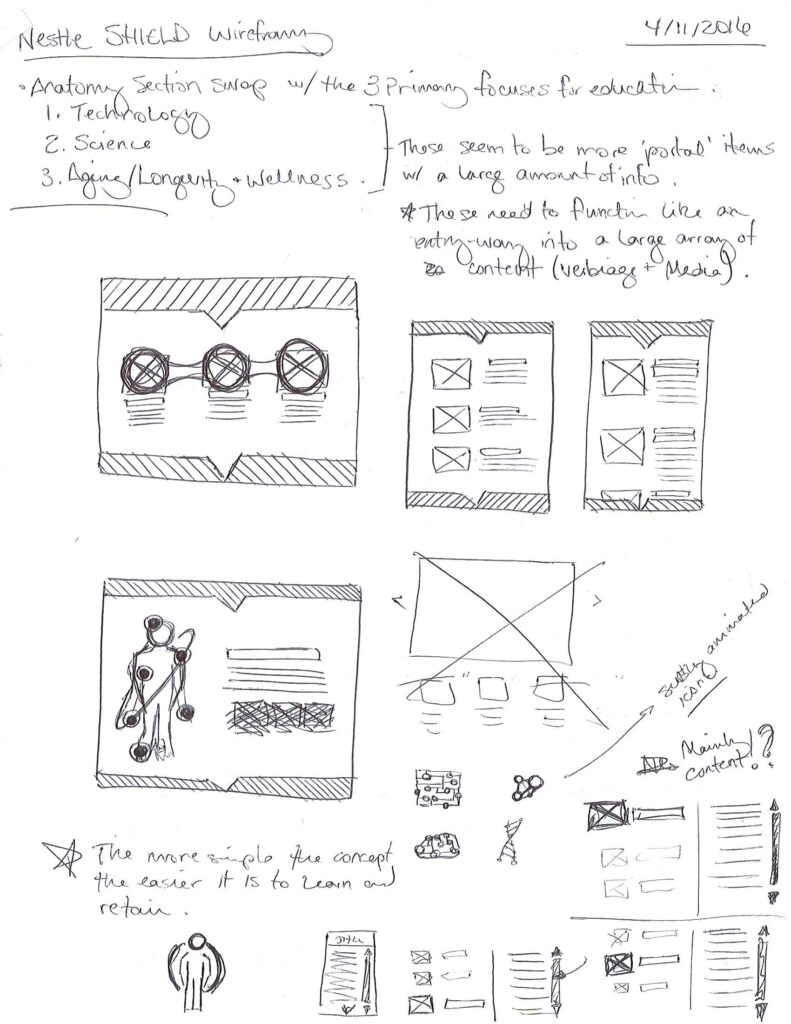 Nestle SHIELD Wireframing
4/11/2016
• Anatomy Section swap w/ the 3 Primary focuses for education.
1. Technology
2. Science
3. Aging/Longevity + Wellness.
These seem to be more 'portal' items
w/ a large amount of info.
* These need to function like an
entry-way into a large array of
content (verbiage + Media).
animated
icons
Mainly
content!?
The more simple the concept
the easier it is to learn and
retain.
TITLE